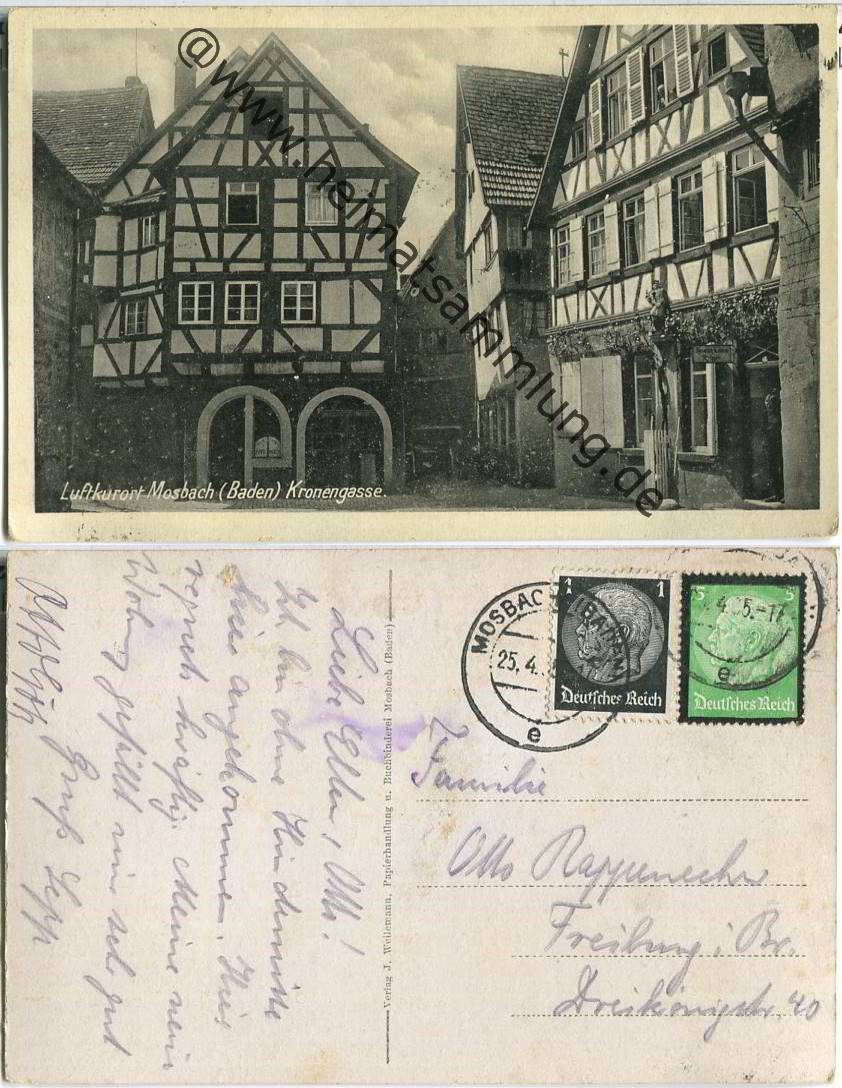 @www.heimatsammlung.de
Luftkurort Mosbach (Baden) Kronengasse.
MOSBACH (BADEN)
25. 4.
e
1 1
Deutsches Reich
5 5
Deutsches Reich
4. 35.-17
e
Verlag J. Weidemann, Papierhandlung u. Buchbinderei Mosbach (Baden)
Familie
Otto Rappenecker
Freiburg i. Br.
Dreikönigstr. 40
Liebe Eltern, Otto!
Ich bin ohne Hindernisse
hier angekommen. Hier
regnets kräftig. Meine neue
Wohnung gefällt mir sehr gut
Gruß Sepp